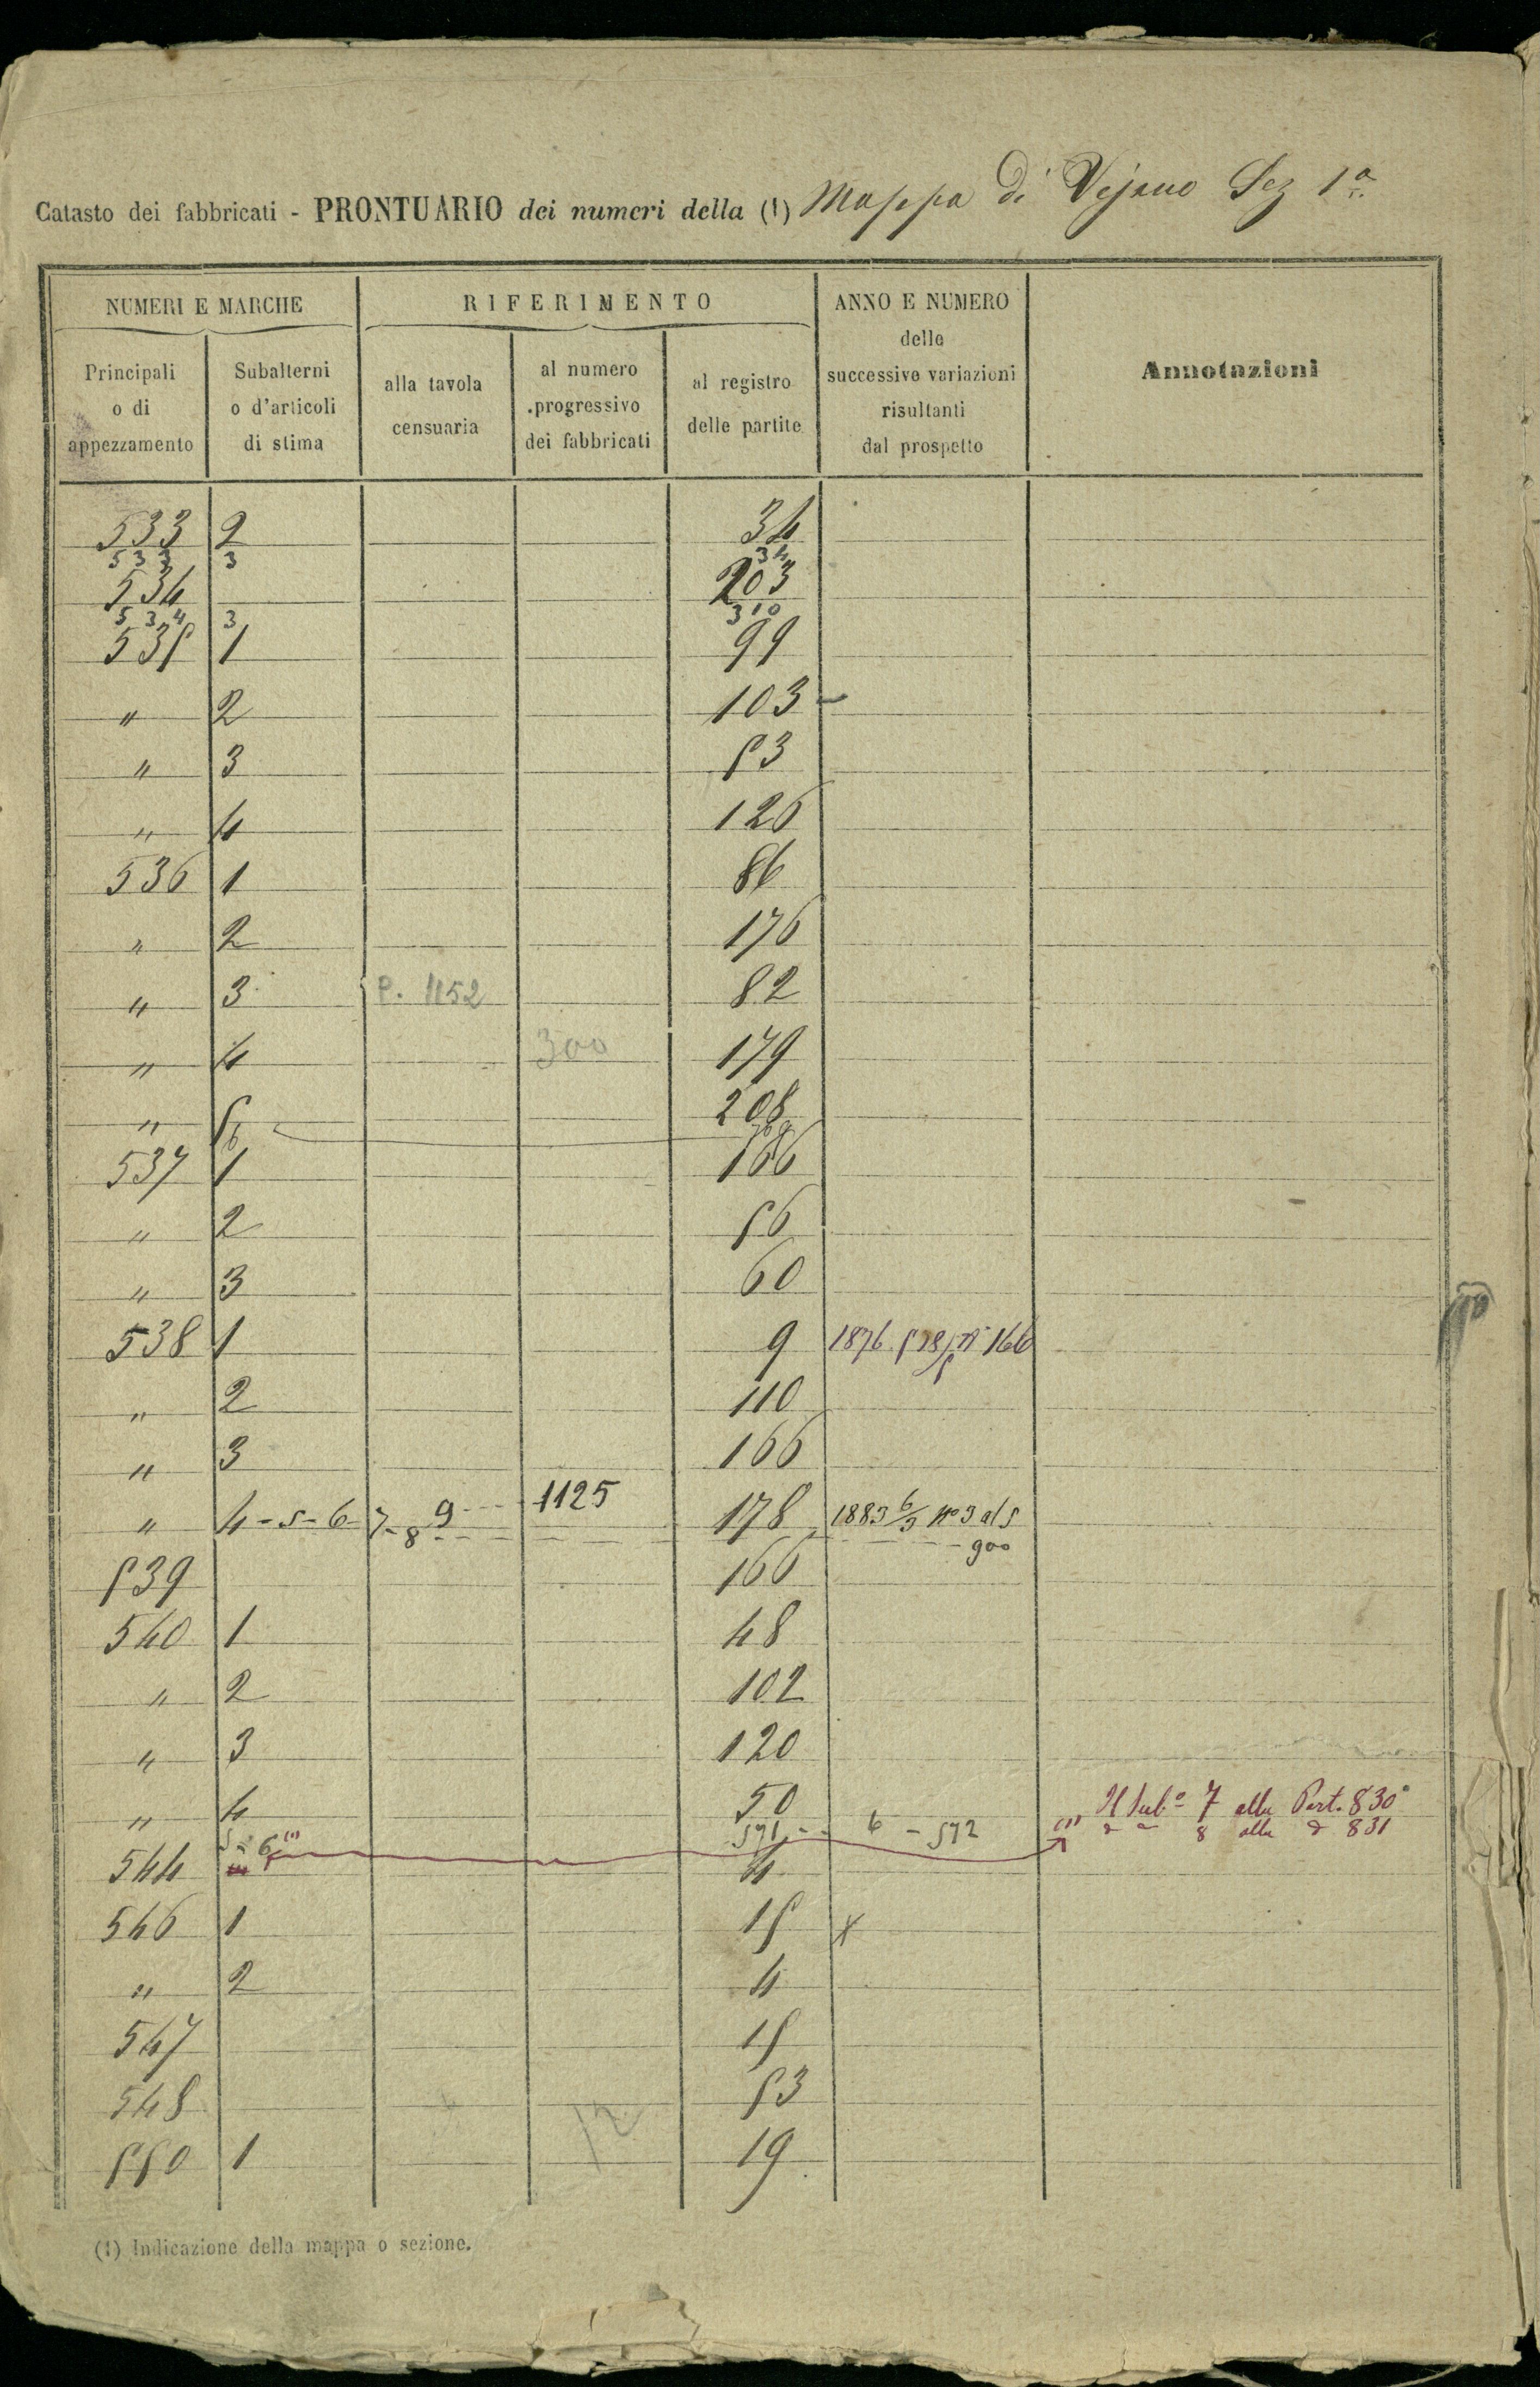 Catasto dei fabbricati - PRONTUARIO dei numeri della (1) Mappa di Vejano Sez 1a
NUMERI E MARCHE
RIFERIMENTO
ANNO E NUMERO
delle
successive variazioni
risultanti
dal prospetto
Annotazioni
Principali
o di
appezzamento
Subalterni
o d'articoli
di stima
alla tavola
censuaria
al numero
progressivo
dei fabbricati
al registro
delle partite
533 2 34
533 3 34
534 203
534 3 310
535 1 99
" 2 103 -
" 3 53
" 4 126
536 1 86
" 2 176
" 3 P. 1152 82
" 4 300 179
" 5 208
6
537 1 166
" 2 56
" 3 60
538 1 9 1876 166
" 2 110
" 3 166
" 4-5-6 7-8 9 1125 178 1883 6/5 No 3 al 5
900
539 166
540 1 48
" 2 102
" 3 120
" 4 50 Il Subo 7 alla Part. 830
5-6 (1) 571 - - 6 - 572 (1) 8 alla 831
544 4
546 1 15 x
" 2 4
547 15
548 53
12
550 1 19
(1) Indicazione della mappa o sezione.